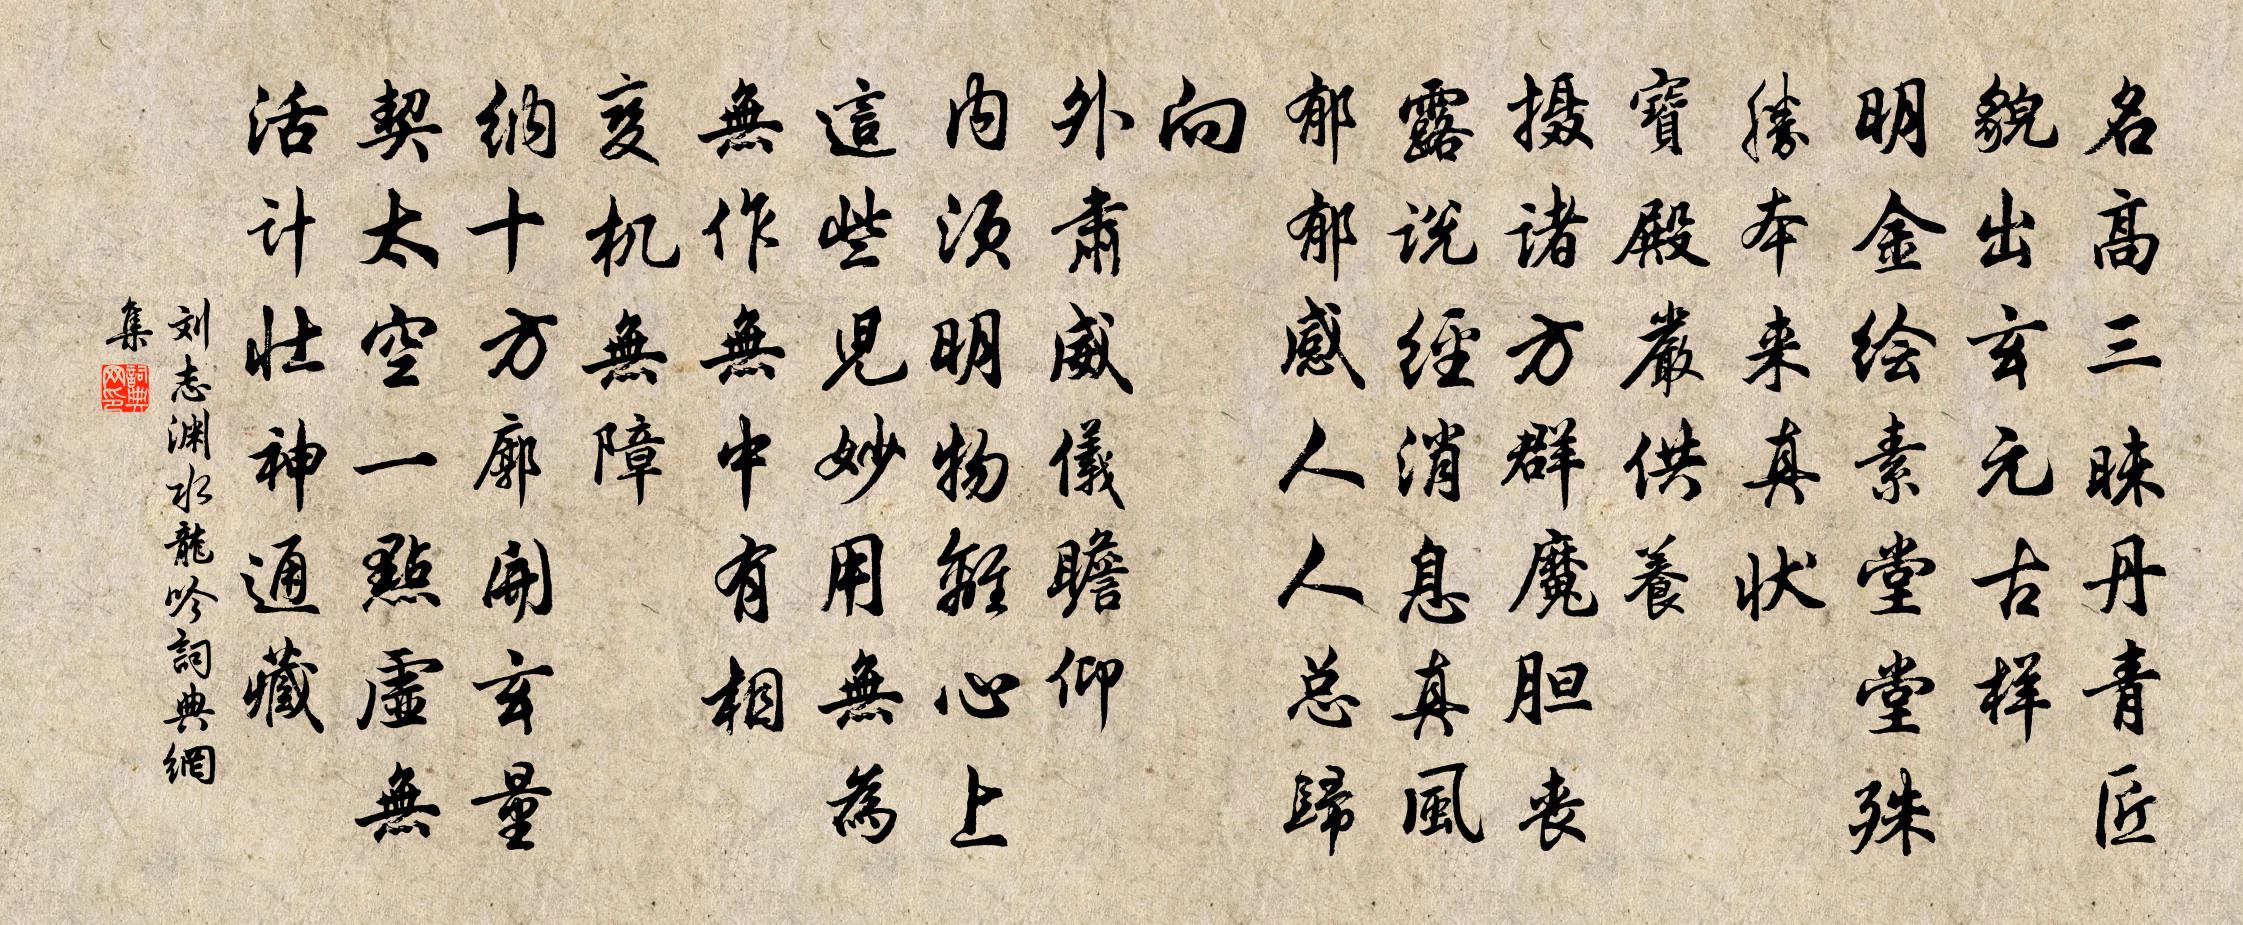 名高三昧丹青匠
貌出玄元古样
明金绘素堂堂殊
勝本来真状
寶殿嚴供養
摄诸方群魔胆丧
露说經消息真風
郁郁感人人总歸
向
外肃威儀瞻仰
内须明物離心上
這些児妙用無為
無作無中有相
变机無障
纳十方廓開玄量
契太空一點虚無
活计壮神通藏
刘志渊水龍吟詞典網
集
詞典
网印